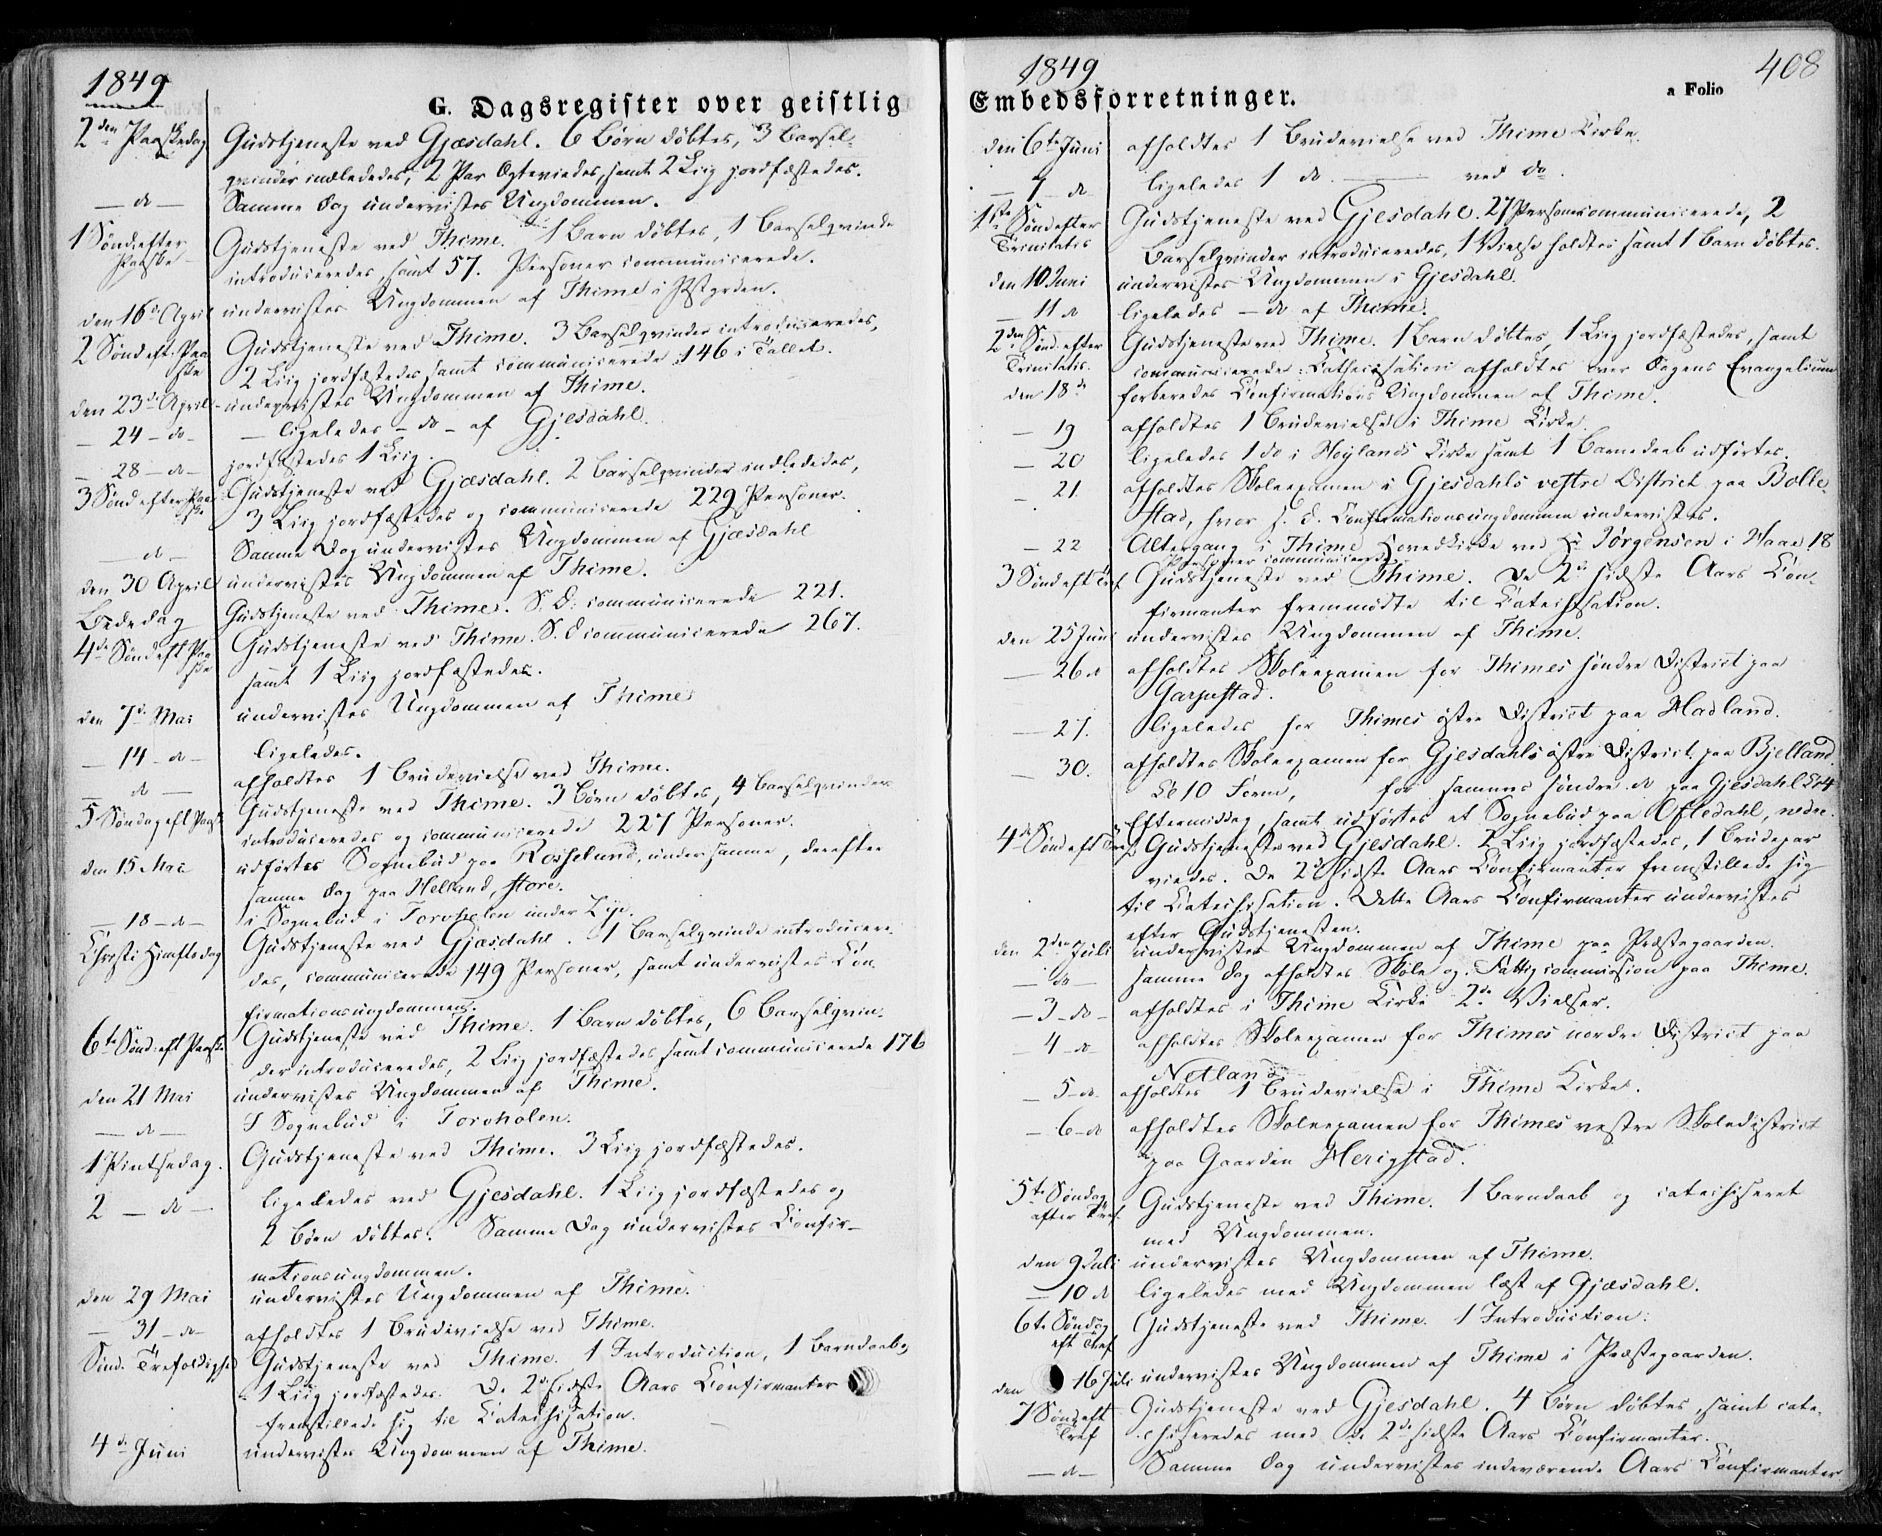 1849
G. Dagsregister over geistlig
2den Paaskedag Gudstjeneste ved Gjæsdahl. 6 Børn døbtes, 3 Barsel-
qvinder indlededes, 2 Par Ægteviedes, samt 2 Liig jordfæstedes.
— do — Samme Dag undervistes Ungdommen.
1 Sønd: efter Gudstjeneste ved Thime. 1 Barn døbtes, 1 Barselqvinde
Paaske introduceredes samt 57. Personer communicerede.
den 16de April undervistes Ungdommen af Thime i
2 Sønd eft: Paa Gudstjeneste ved Thime. 3 Barselqvinder introduceredes,
ske 2 Liig jordfæstedes samt communicerede 146 i Tallet.
den 23de April undervistes Ungdommen af Thime.
— 24 — do — — ligeledes — do — af Gjesdahl.
— 28 — do — jordfæstedes 1 Liig.
3 Sønd efter Paa Gudstjeneste ved Gjæsdahl. 2 Barselqvinder indlededes,
ske 3 Liig jordfæstedes og communicerede 229 Personer.
— do — Samme Dag undervistes Ungdommen af Gjæsdahl
den 30 April undervistes Ungdommen af Thime.
Bededag Gudstjeneste ved Thime. S. D. communicerede 221.
4de Sønd eft Paa Gudstjeneste ved Thime. S. D communicerede 267.
ske samt 1 Liig jordfæstedes.
den 7de Mai undervistes Ungdommen af Thime
— 14 — do — ligeledes.
— do — afholdtes 1 Brudevielse ved Thime.
5 Søndag eft Paaske Gudstjeneste ved Thime. 3 Børn døbtes, 4 Barselqvinder
introduceredes og communicerede 227 Personer.
den 15 Mai udførtes Sognebud paa Rosselund, under samme, derefter
samme Dag paa Helland, store.
— 18 — do — i Sognebud i Torvholen under Lye.
Christi Himfts dag Gudstjeneste ved Gjæsdahl. 1 Barselqvinde introducere-
des, communicerede 149 Personer, samt undervistes Con-
firmationsungdommen.
6te Sønd: eft Paaske Gudstjeneste ved Thime. 1 Barn døbtes, 6 Barselqvin-
der introduceredes, 2 Liig jordfæstedes samt communicerede 176
den 21 Mai undervistes Ungdommen af Thime.
— do — I Sognebud i Torvholen.
1 Pintsedag. Gudstjeneste ved Thime. 3 Liig jordfæstedes.
2 — do — ligeledes ved Gjesdahl. 1 Liig jordfæstedes og
2 Børn døbtes. Samme Dag undervistes Confir-
mationsungdommen.
den 29 Mai undervistes Ungdommen af Thime.
— 31 — do — afholdtes 1 Brudevielse ved Thime.
Sønd. Trefoldighed Gudstjeneste ved Thime. 1 Introduction, 1 Barndaab,
1 Liig jordfæstedes. De 2de sidste Aars Confirmanter
fremstillede sig til Catechisation.
4de Juni undervistes Ungdommen af Thime.
1849 408
Embedsforretninger. a Folio
den 6te Juni afholdtes 1 Brudevielse ved Thime Kirke.
— 7 — do ligeledes 1 do — ved do.
1ste Sønd efter Gudstjeneste ved Gjesdahl. 27 Personer communicerede, 2
Trinitatis Barselqvinder introduceredes, 1 Vielse holdtes samt 1 Barn døbtes.
den 10 Juni undervistes Ungdommen i Gjesdahl.
— 11 do ligeledes — do af Thime.
2den Sønd. efter Gudstjeneste ved Thime. 1 Barn døbtes, 1 Liig jordfæstedes, samt
Trinitatis. communicerede: Catechisation afholdtes over Dagens Evangelium
den 18de forberedes Confirmations Ungdommen af Thime.
— 19 afholdtes 1 Brudevielse i Thime Kirke.
— 20 ligeledes 1 do i Høylands Kirke samt 1 Barnedaab udførtes.
— 21. afholdtes Skoleexamen i Gjesdahls vestre District paa Bolle-
stad, hvor s. D. Confirmationsungdommen undervistes.
— 22 Altergang i Thime Hovedkirke ved Hr Jørgensen i Haae. 18
Personer communicerede
3 Sønd eft Tref Gudstjeneste ved Thime. De 2de sidste Aars Con-
firmanter fremmødte til Catechisation.
den 25 Juni undervistes Ungdommen af Thime.
— 26 do afholdtes Skoleexamen for Thimes søndre District paa
Garpestad.
— 27. ligeledes for Thimes østre District paa Hadland.
— 30. afholdtes Skoleexamen for Gjesdahls østre District paa Bjelland
Kl 10 Form, for sammes søndre do paa Gjesdahl Kl 4
Eftermiddag, samt udførtes et Sognebud paa Ofledahl, nedre.
4de Sønd eft Tref Gudstjeneste ved Gjesdahl. 2 Liig jordfæstedes, 1 Brudepar
viedes. De 2de sidste Aars Confirmanter fremstillede sig
til Catechisation. Dette Aars Confirmanter undervistes
efter Gudstjenesten.
den 2den Juli undervistes Ungdommen af Thime paa Præstegaarden.
— do — samme Dag afholdtes Skole og Fattigcommission paa Thime.
— 3 — do — afholdtes i Thime Kirke 2de Vielser.
— 4 — do afholdtes Skoleexamen for Thimes nordre District paa
Netland
— 5 — do afholdtes 1 Brudevielse i Thime Kirke.
— 6 — do afholdtes Skoleexamen for Thimes vestre Skoledistrict
paa Gaarden Herigstad.
5te Søndag Gudstjeneste ved Thime. 1 Barndaab og catechiseret
efter Tref. med Ungdommen.
den 9 Juli undervistes Ungdommen af Thime.
— 10 do ligeledes med Ungdommen læst af Gjæsdahl.
6te Søndag Gudstjeneste ved Thime. 1 Introduction:
eft Tref
den 16 Juli undervistes Ungdommen af Thime i Præstegaarden.
7 Sønd eft Gudstjeneste ved Gjesdahl. 4 Børn døbtes, samt cate-
Tref chiseredes med de 2de sidste Aars Confirmanter.
— do — Samme Dag undervistes indeværende Aars Confirmanter